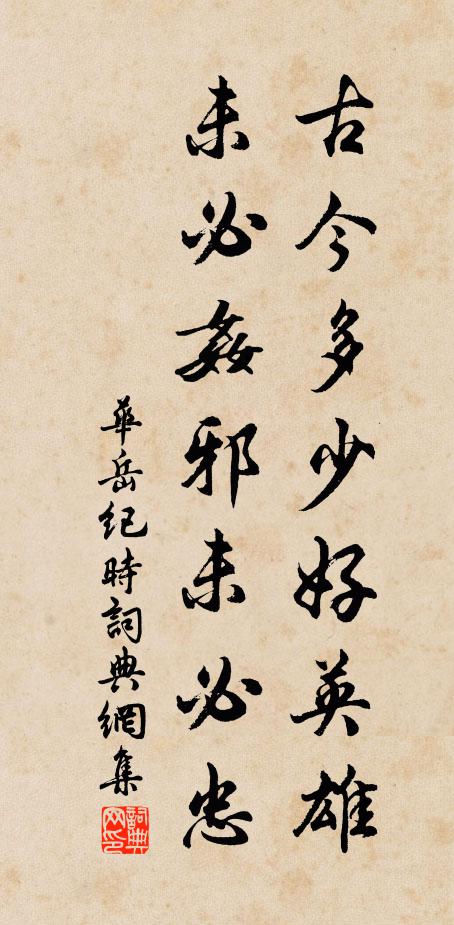 古今多少好英雄
未必姦邪未必忠
華岳紀時詞典網集
詞典网印